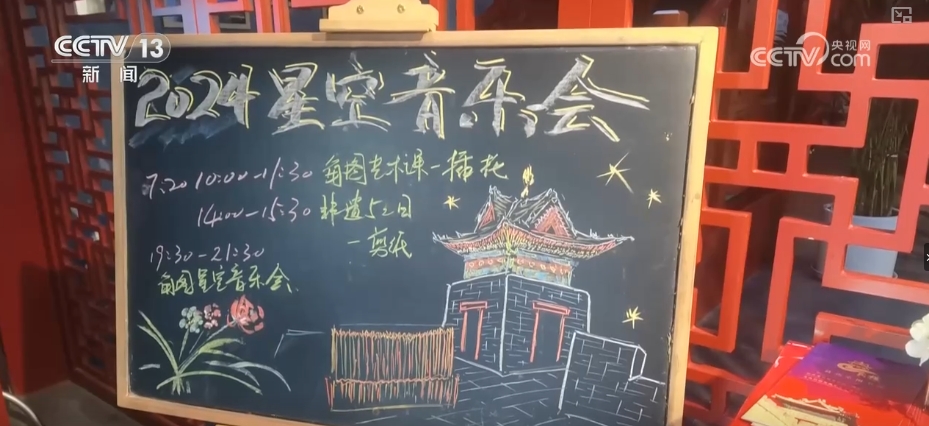 CCTV 13
新闻
央视网
CCTV.com
2024星空音乐会
7:20 10:00-11:30 角图艺术课-插花
14:00-15:30 非遗
-剪纸
19:30-21:30
角图星空音乐会